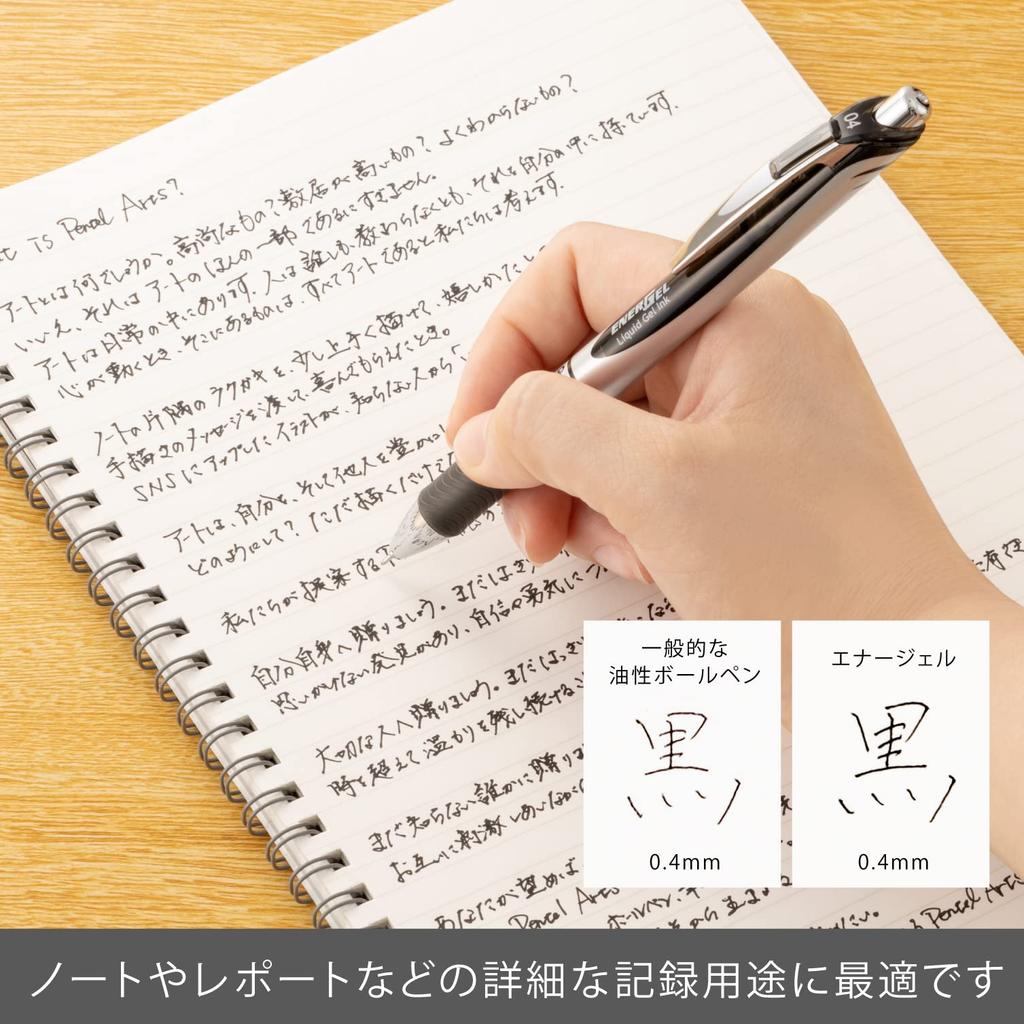 Is Pencel Arts?
アートとは何でしょうか。高尚なもの?敷居が高いもの?よくわからないもの?
いいえ、それはアートのほんの一部であるにすぎません。
アートは日常の中にあります。人は誰しも、教わらなくとも、それを自分の中に持っています。
心が動くとき、そこにあるものは、すべてアートであると私たちは考えます。
ノートの片隅のラクガキを、少し上手く描けて、嬉しかった
手描きのメッセージを渡して、喜んでもらえたとき。
SNSにアップしたイラストが、知らない人から「
アートは、自分を、そして他人を豊かに
どのようにして?ただ描くだけで
私たちが提案する
自分自身へ贈りましょう。まだはっきり
思いがけない発見があり、自信や勇気に
大切な人へ贈りましょう。まだはっき
時を超えて温かりを残し続ける
まだ知らない誰かに贈りま
お互いに刺激しあいながら
あなたが望めば
Pencel Arts
ボールペン、
ENERGEL
Liquid Gel Ink
04
一般的な
油性ボールペン
黒
0.4mm
エナージェル
黒
0.4mm
ノートやレポートなどの詳細な記録用途に最適です